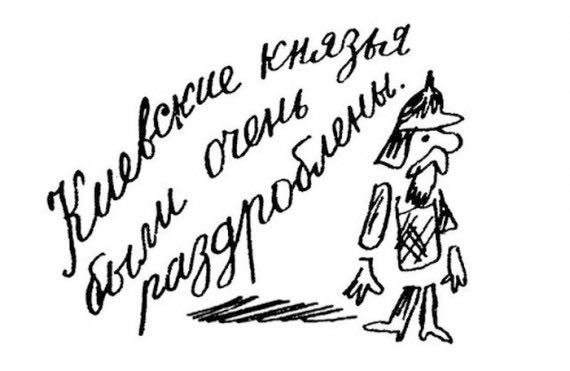 Киевские князья
были очень
раздроблены.